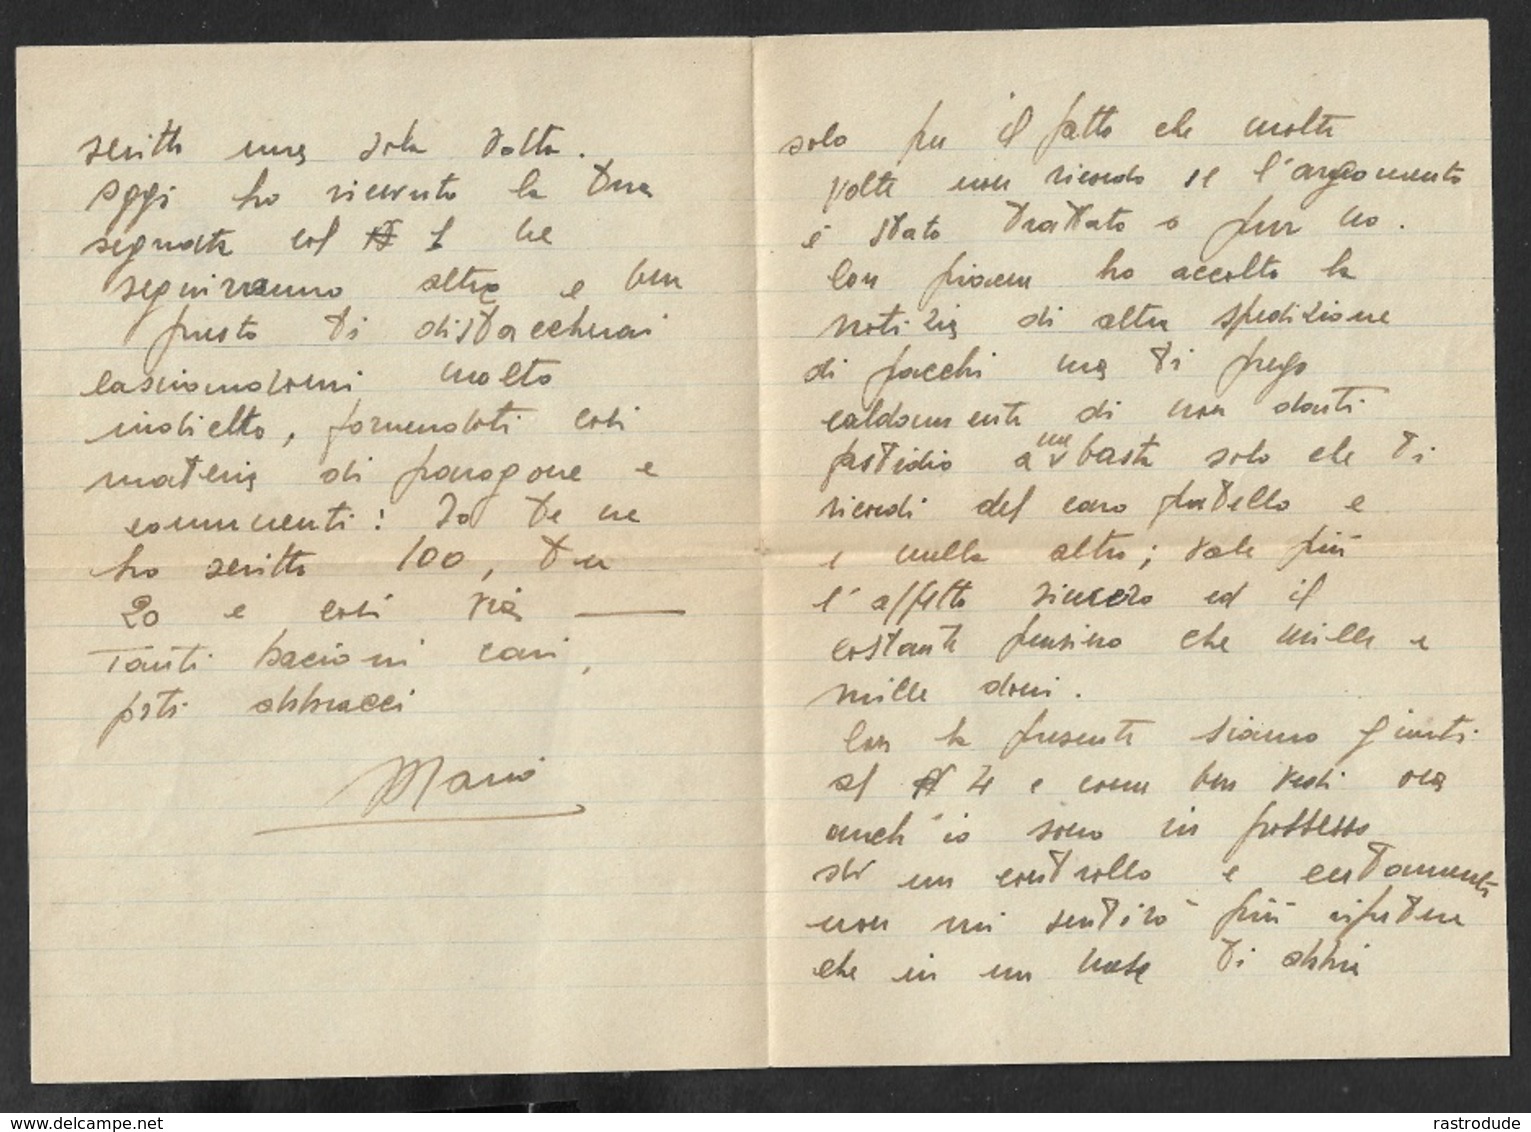 solo per il fatto che molte
volte non ricordo se l'argomento
è stato trattato o pur no.
Con piacere ho accolto la
notizia di altra spedizione
di pacchi ma ti prego
caldamente di non darti
fastidio a me basta solo che ti
ricordi del caro fratello e
e nulla altro; vale più
l'affetto sincero ed il
costante pensiero che mille e
mille doni.
Con la presente siamo giunti
al N 4 e come ben vedi ora
anch'io sono in possesso
di un controllo e certamente
non mi sentirò più ripetere
che in un mese ti abbia
scritto una sola volta.
Oggi ho ricevuto la tua
segnata col N 1 ne
seguiranno altre e ben
presto ti distaccherai
lasciandomi molto
indietro, fornendoti così
materia di paragone e
commenti! Io te ne
ho scritto 100, tu
20 e così via —
Tanti bacioni cari,
forti abbracci
Mario
www.delcampe.net
rastrodude